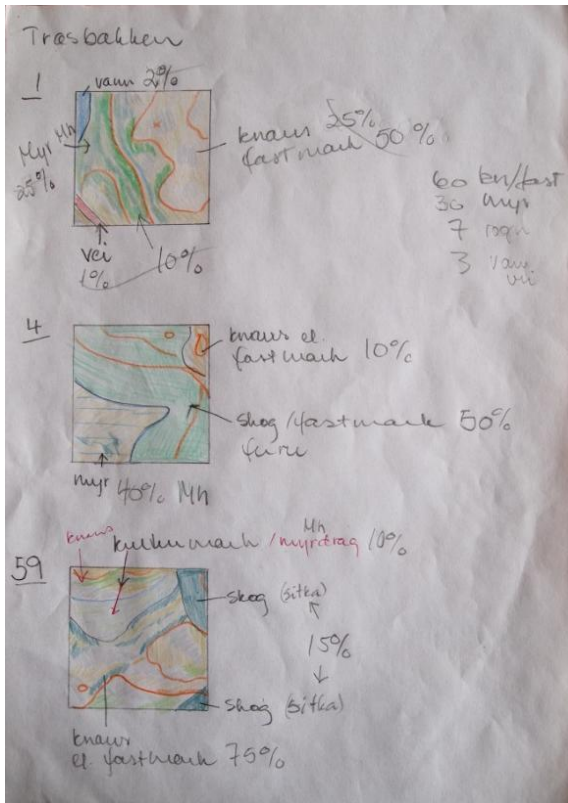 Træsbakken
1
vann 2%
Myr Mh
25%
knaus 25%
fastmark 50%
60 kn/fast
30 myr
7
3
vei
vei
1%
10%
4
knaus el.
fastmark 10%
skog/fastmark 50%
furu
myr 40% Mh
knaus
Mh
/myrdrag 10%
59
skog (sitka)
15%
skog (sitka)
knaus
el. fastmark 75%